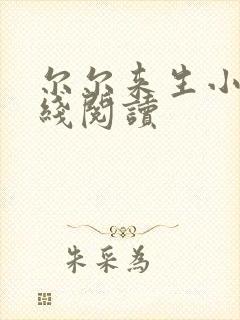 尔尔来生小
綫閱讀
朱采為